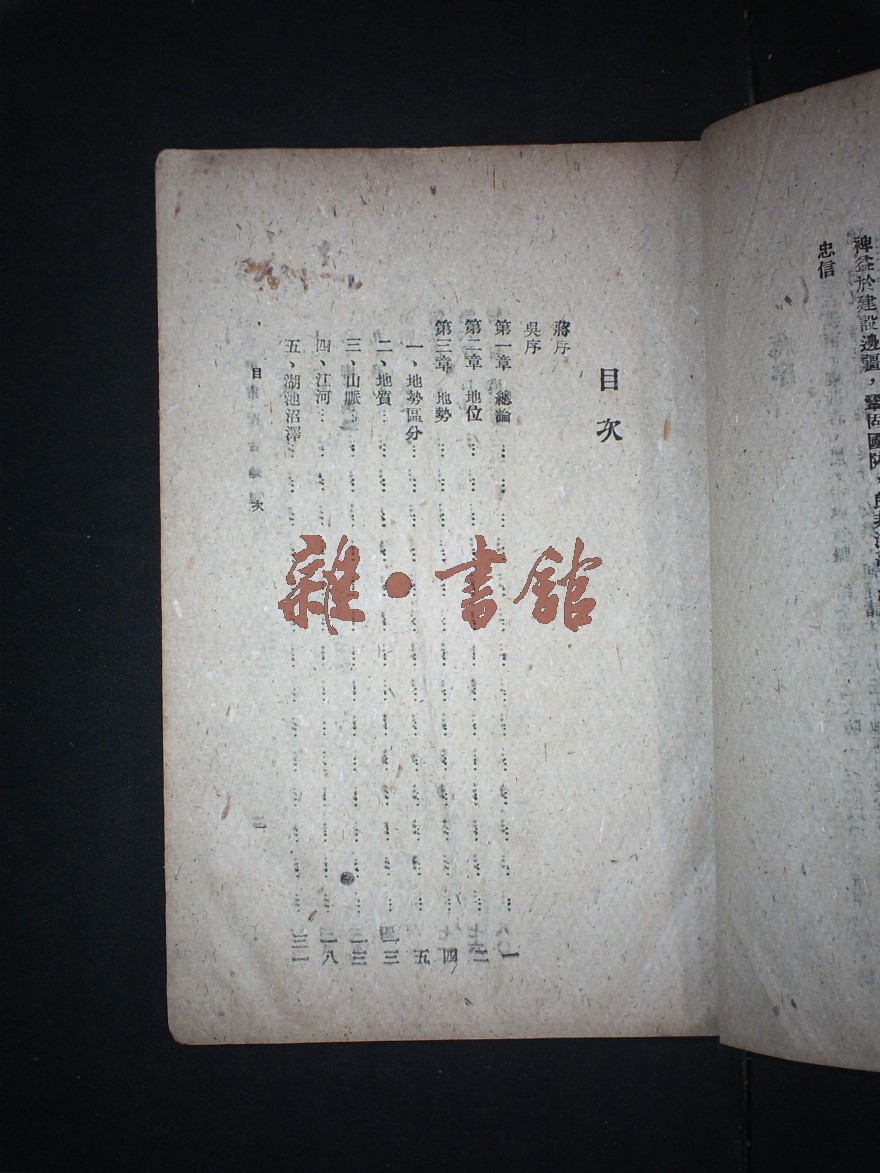 裨益於建設邊疆，鞏固國防，
忠信
目次
蔣序
吳序
第一章　總論……一
第二章　地位……二
第三章　地勢……四
一、地勢區分……五
二、地質……
三、山脈……
四、江河……一八
五、湖池沼澤……
目　次
雜·書館